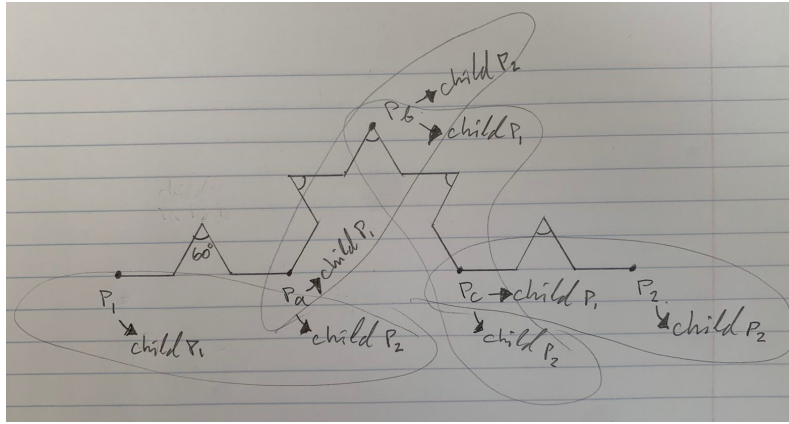 → child P₂
P_b.
→ child P₁
60°
→ child P₁
P₁
→ child P₁
P_a
→ child P₂
P_c → child P₁
→ child P₂
P₂
→ child P₂